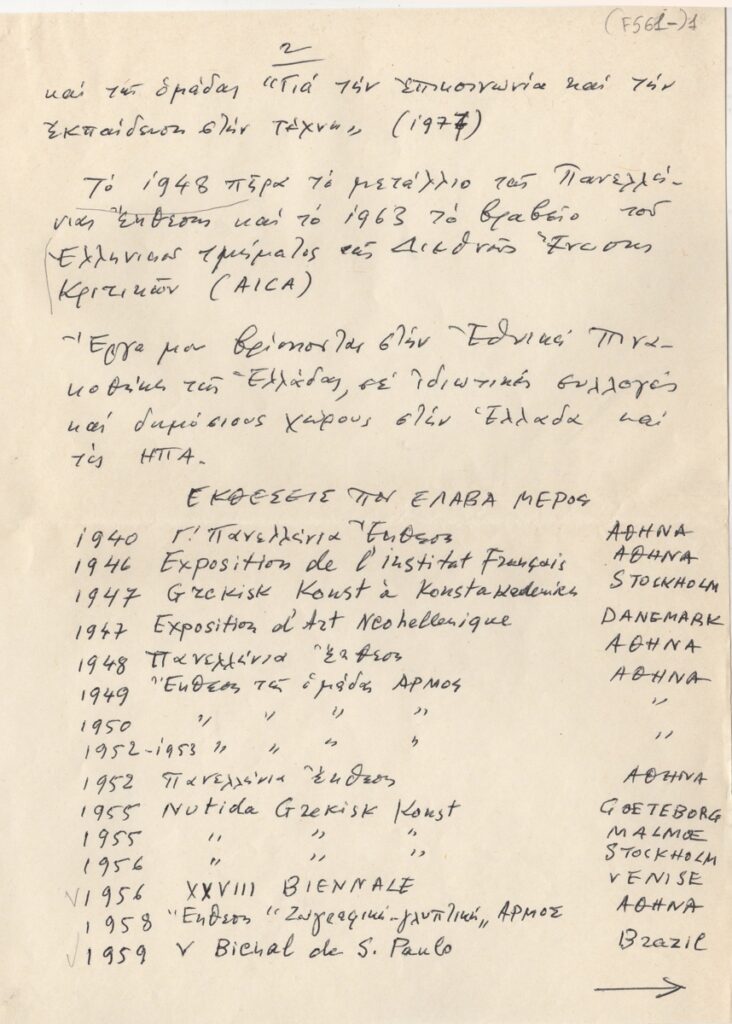 (F561-)1
2
καί τῆς ὁμάδας "Γιά τήν ἐπικοινωνία καί τήν
ἐκπαίδευση στήν τέχνη„ (1977)
Τό 1948 πῆρα τό μετάλλιο τῆς Πανελλή-
νιας Ἔκθεσης καί τό 1963 τό βραβεῖο τοῦ
Ἑλληνικοῦ τμήματος τῆς Διεθνῆς Ἕνωσης
Κριτικῶν (AICA)
Ἔργα μου βρίσκονται στήν Ἐθνική Πινα-
κοθήκη τῆς Ἑλλάδας, σέ ἰδιωτικές συλλογές
καί δημόσιους χώρους στήν Ἑλλάδα καί
τίς ΗΠΑ.
ΕΚΘΕΣΕΙΣ ΠΟΥ ΕΛΑΒΑ ΜΕΡΟΣ
1940 Γ! Πανελλήνια Ἔκθεση ΑΘΗΝΑ
1946 Exposition de l'institut Français ΑΘΗΝΑ
1947 Grekisk Konst à Konstakademien STOCKHOLM
1947 Exposition d'Art Neohellenique DANEMARK
1948 Πανελλήνια Ἔκθεση ΑΘΗΝΑ
1949 Ἔκθεση τῆς ὁμάδας ΑΡΜΟΣ ΑΘΗΝΑ
1950 " " " " "
1952-1953 " " " " "
1952 Πανελλήνια Ἔκθεση ΑΘΗΝΑ
1955 Nutida Grekisk Konst GOETEBORG
1955 " " " MALMOE
1956 " " " STOCKHOLM
√ 1956 XXVIII BIENNALE VENISE
1958 Ἔκθεση "Ζωγραφική-γλυπτική„ ΑΡΜΟΣ ΑΘΗΝΑ
√ 1959 V Bienal de S. Paulo Brazil